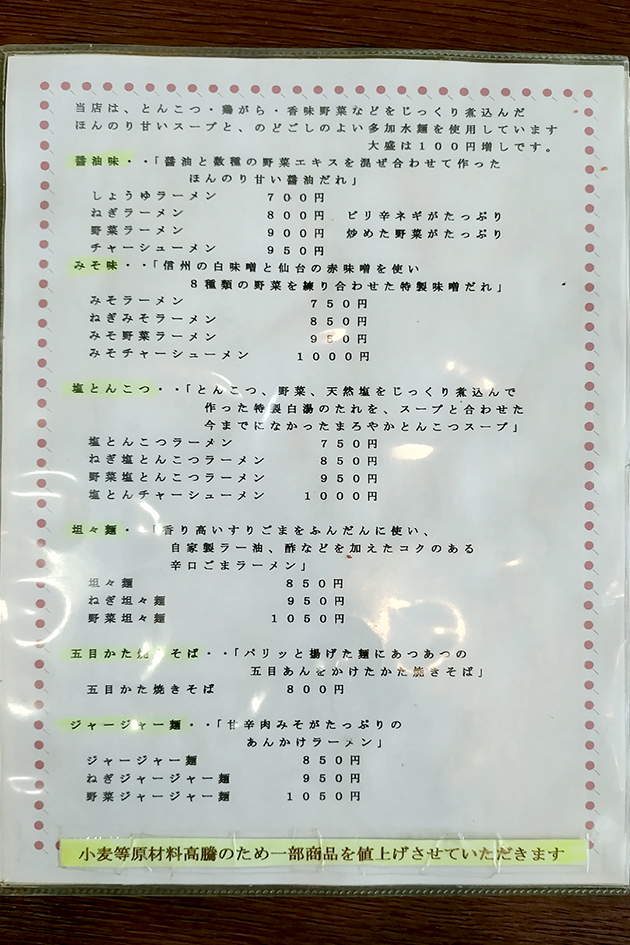 当店は、とんこつ・鶏がら・香味野菜などをじっくり煮込んだ
ほんのり甘いスープと、のどごしのよい多加水麺を使用しています
大盛は１００円増しです。
醤油味・・「醤油と数種の野菜エキスを混ぜ合わせて作った
ほんのり甘い醤油だれ」
しょうゆラーメン ７００円
ねぎラーメン ８００円 ピリ辛ネギがたっぷり
野菜ラーメン ９００円 炒めた野菜がたっぷり
チャーシューメン ９５０円
みそ味・・「信州の白味噌と仙台の赤味噌を使い
８種類の野菜を練り合わせた特製味噌だれ」
みそラーメン ７５０円
ねぎみそラーメン ８５０円
みそ野菜ラーメン ９５０円
みそチャーシューメン １０００円
塩とんこつ・・「とんこつ、野菜、天然塩をじっくり煮込んで
作った特製白湯のたれを、スープと合わせた
今までになかったまろやかとんこつスープ」
塩とんこつラーメン ７５０円
ねぎ塩とんこつラーメン ８５０円
野菜塩とんこつラーメン ９５０円
塩とんチャーシューメン １０００円
坦々麺・・「香り高いすりごまをふんだんに使い、
自家製ラー油、酢などを加えたコクのある
辛口ごまラーメン」
坦々麺 ８５０円
ねぎ坦々麺 ９５０円
野菜坦々麺 １０５０円
五目かた焼きそば・・「パリッと揚げた麺にあつあつの
五目あんをかけたかた焼きそば」
五目かた焼きそば ８００円
ジャージャー麺・・「甘辛肉みそがたっぷりの
あんかけラーメン」
ジャージャー麺 ８５０円
ねぎジャージャー麺 ９５０円
野菜ジャージャー麺 １０５０円
小麦等原材料高騰のため一部商品を値上げさせていただきます